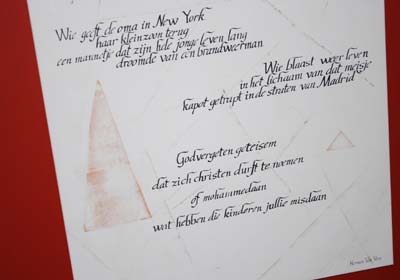 Wie geeft de oma in New York
haar kleinzoon terug
een mannetje dat zijn hele jonge leven lang
droomde van een brandweerman
Wie blaast weer leven
in het lichaam van dat meisje
kapot getrapt in de straten van Madrid
Godvergeten geteisem
dat zich christen durft te noemen
of mohammedaan
wat hebben die kinderen jullie misdaan